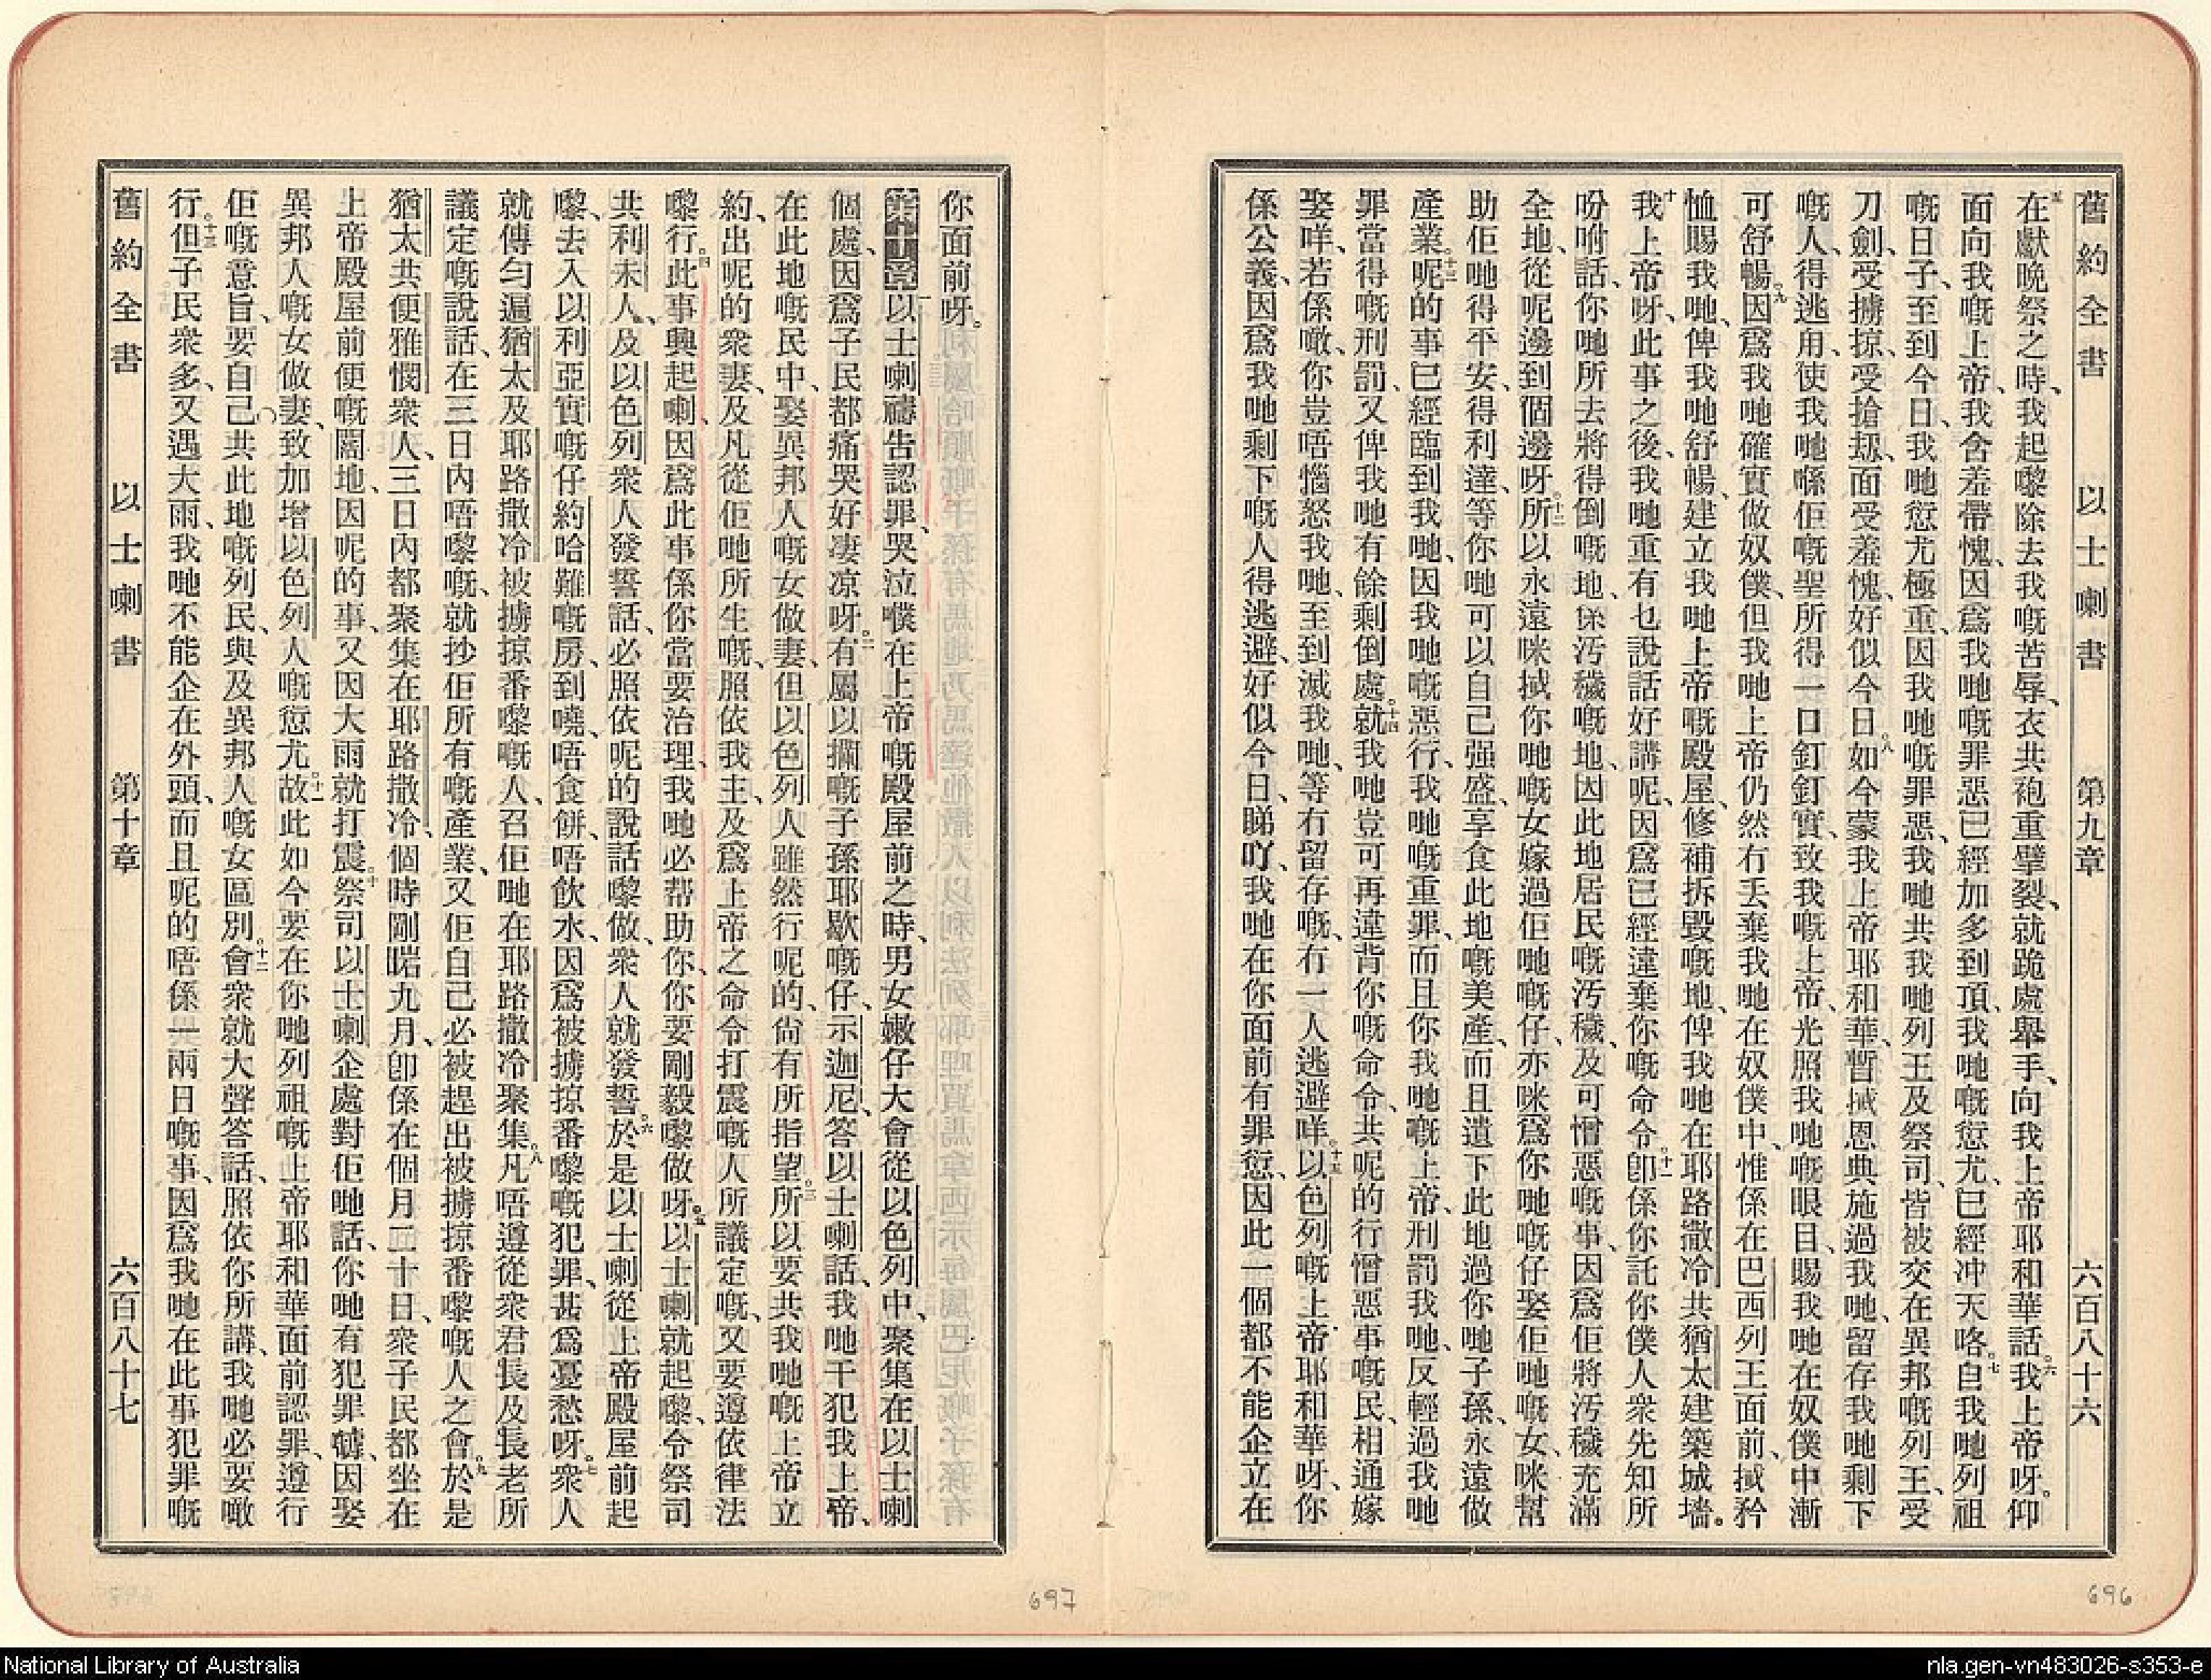 舊約全書 以士喇書 第九章 六百八十六
五在獻晚祭之時、我起嚟除去我嘅苦辱、衣共袍重擘裂、就跪處舉手、向我上帝耶和華話。六我上帝呀。仰
面向我嘅上帝、我含羞帶愧、因爲我哋嘅罪惡已經加多到頂、我哋嘅愆尤已經冲天咯。七自我哋列祖
嘅日子、至到今日、我哋愆尤極重、因我哋嘅罪惡、我哋共我哋列王及祭司、皆被交在異邦嘅列王、受
刀劍、受擄掠、受搶刼、面受羞愧、好似今日。八如今蒙我上帝耶和華、暫搣恩典施過我哋、留存我哋剩下
嘅人、得逃用、使我哋喺佢嘅聖所得一口釘釘實、致我嘅上帝、光照我哋嘅眼目、賜我哋在奴僕中漸
可舒暢。九因爲我哋確實做奴僕、但我哋上帝仍然冇丟棄我哋在奴僕中、惟係在巴西列王面前、搣矜
恤賜我哋、俾我哋舒暢、建立我哋上帝嘅殿屋、修補拆毀嘅地、俾我哋在耶路撒冷共猶太建築城墻。
十我上帝呀、此事之後、我哋重有乜說話好講呢、因爲已經違棄你嘅命令。十一卽係你託你僕人衆先知所
吩咐話、你哋所去將得倒嘅地、係汚穢嘅地、因此地居民嘅汚穢、及可憎惡嘅事、因爲佢將汚穢充滿
全地、從呢邊到個邊呀。十二所以永遠咪搣你哋嘅女嫁過佢哋嘅仔、亦咪爲你哋嘅仔娶佢哋嘅女、咪幫
助佢哋得平安、得利達、等你哋可以自己强盛、享食此地嘅美產、而且遺下此地過你哋子孫、永遠做
產業。十三呢的事已經臨到我哋、因我哋嘅惡行、我哋嘅重罪、而且你我哋嘅上帝、刑罰我哋、反輕過我哋
罪當得嘅刑罰、又俾我哋有餘剩倒處。十四就我哋豈可再違背你嘅命令、共呢的行憎惡事嘅民、相通嫁
娶咩、若係噉、你豈唔惱怒我哋、至到滅我哋、等冇留存嘅、冇一人逃避咩。十五以色列嘅上帝耶和華呀、你
係公義、因爲我哋剩下嘅人得逃避、好似今日、睇吖、我哋在你面前有罪愆、因此一個都不能企立在
你面前呀。
第十章一以士喇禱告認罪、哭泣噗在上帝嘅殿屋前之時、男女嫩仔大會從以色列中、聚集在以士喇
個處、因爲子民都痛哭好凄凉呀。二有屬以攔嘅子孫耶歇嘅仔、示迦尼、答以士喇話、我哋干犯我上帝、
在此地嘅民中、娶異邦人嘅女做妻、但以色列人雖然行呢的、尙有所指望。三所以要共我哋嘅上帝立
約、出呢的衆妻、及凡從佢哋所生嘅、照依我主、及爲上帝之命令打震嘅人所議定嘅、又要遵依律法
嚟行。四此事興起喇、因爲此事係你當要治理、我哋必帮助你、你要剛毅嚟做呀。五以士喇就起嚟、令祭司
共利未人、及以色列衆人發誓話、必照依呢的說話嚟做、衆人就發誓。六於是以士喇從上帝殿屋前起
嚟、去入以利亞實嘅仔約哈難嘅房、到嘵、唔食餅、唔飲水、因爲被擄掠番嚟嘅犯罪、甚爲憂愁呀。七衆人
就傳勻遍猶太及耶路撒冷被擄掠番嚟嘅人、召佢哋在耶路撒冷聚集。八凡唔遵從衆君長及長老所
議定嘅說話、在三日內唔嚟嘅、就抄佢所有嘅產業、又佢自己必被趕出被擄掠番嚟嘅人之會。九於是
猶太共便雅憫衆人、三日內都聚集在耶路撒冷、個時剛啱九月、卽係在個月二十日、衆子民都坐在
上帝殿屋前便嘅闊地、因呢的事、又因大雨就打震。十祭司以士喇企處對佢哋話、你哋有犯罪𠻹、因娶
異邦人嘅女做妻、致加增以色列人嘅愆尤。十一故此如今要在你哋列祖嘅上帝耶和華面前認罪、遵行
佢嘅意旨、要自己共此地嘅列民、與及異邦人嘅女區別。十二會衆就大聲答話、照依你所講、我哋必要噉
行。十三但子民衆多、又遇大雨、我哋不能企在外頭、而且呢的唔係一兩日嘅事、因爲我哋在此事犯罪嘅
舊約全書 以士喇書 第十章 六百八十七
697
696
National Library of Australia
nla.gen-vn483026-s353-e